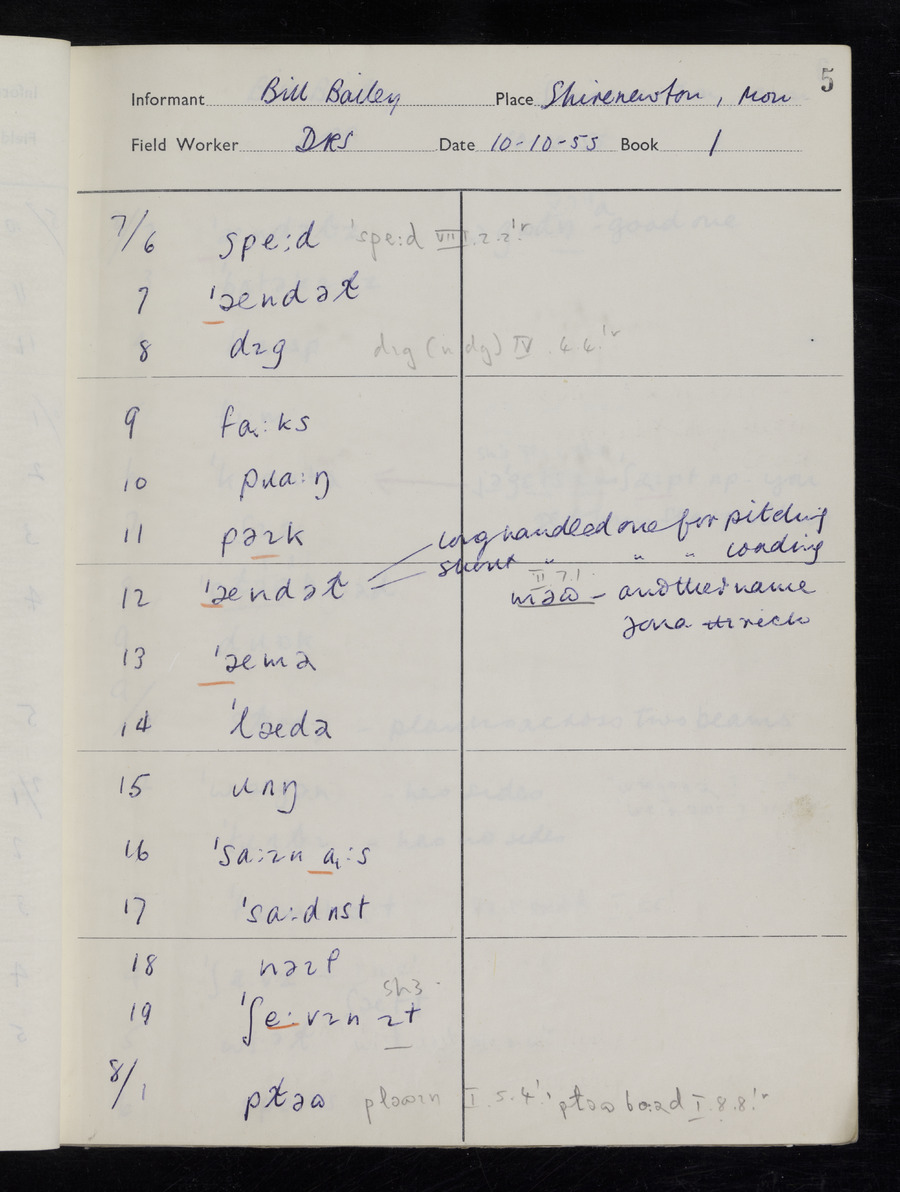 5
Informant Bill Bailey Place Shirenewton, Mon
Field Worker DRS Date 10-10-55 Book 1
7/6 spe:d 'spe:d VIII.2.2!ʳ
7 'ændəɫ
8 dɪg dɪg (n dg) IV.4.4!ʳ
9 fa:ks
10 pɹa:ŋ
11 pəɪk long handled one for pitching
short " " " loading
12 'ændəɫ II 7.1!
mɪəɷ - another name
for a rick
13 'æmə
14 'lædə
15 ɹʌŋ
16 'sa:ɪn a:s
17 'sa:dnst
18 nəɪl
19 'ʃe:vɪn ɪt
8/1 pɫəɷ I.5.4! 'pɫəɷ bɔ:əd I.8.8!ʳ